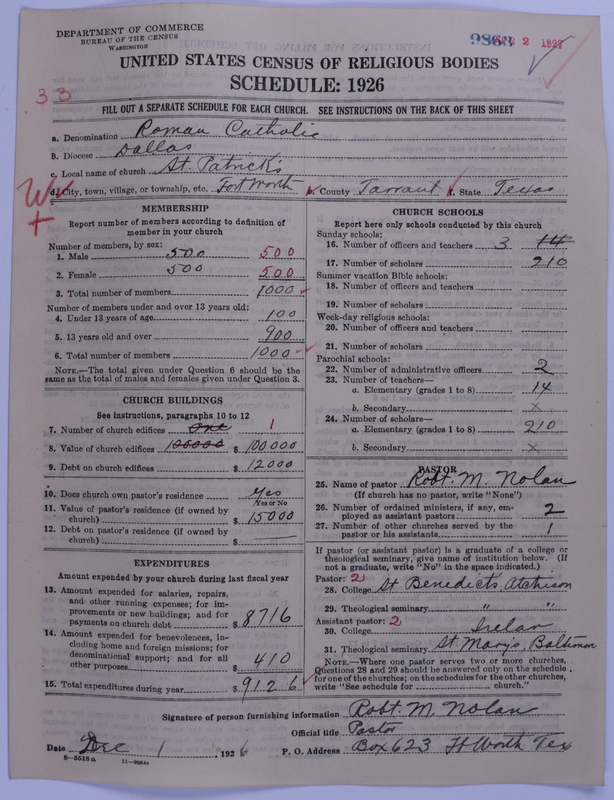 DEPARTMENT OF COMMERCE
BUREAU OF THE CENSUS
WASHINGTON
9868 2 1927
UNITED STATES CENSUS OF RELIGIOUS BODIES
SCHEDULE: 1926
33
FILL OUT A SEPARATE SCHEDULE FOR EACH CHURCH. SEE INSTRUCTIONS ON THE BACK OF THIS SHEET
a. Denomination Roman Catholic
b. Diocese Dallas
c. Local name of church St. Patrick's
d. City, town, village, or township, etc. Fort Worth e. County Tarrant f. State Texas
MEMBERSHIP
Report number of members according to definition of
member in your church
Number of members, by sex:
1. Male 500 500
2. Female 500 500
3. Total number of members 1000
Number of members under and over 13 years old:
4. Under 13 years of age 100
5. 13 years old and over 900
6. Total number of members 1000
NOTE.—The total given under Question 6 should be
same as the total of males and females given under Question 3.
CHURCH BUILDINGS
See instructions, paragraphs 10 to 12
7. Number of church edifices one 1
8. Value of church edifices 100000 $ 100000
9. Debt on church edifices $ 12000
10. Does church own pastor's residence Yes
Yes or No
11. Value of pastor's residence (if owned by
church) $ 15000
12. Debt on pastor's residence (if owned by
church) $
EXPENDITURES
Amount expended by your church during last fiscal year
13. Amount expended for salaries, repairs,
and other running expenses; for im-
provements or new buildings; and for
payments on church debt $ 8716
14. Amount expended for benevolences, in-
cluding home and foreign missions; for
denominational support; and for all
other purposes $ 410
15. Total expenditures during year $ 9126
CHURCH SCHOOLS
Report here only schools conducted by this church
Sunday schools:
16. Number of officers and teachers 3 14
17. Number of scholars 210
Summer vacation Bible schools:
18. Number of officers and teachers
19. Number of scholars
Week-day religious schools:
20. Number of officers and teachers
21. Number of scholars
Parochial schools:
22. Number of administrative officers 2
23. Number of teachers—
a. Elementary (grades 1 to 8) 14
b. Secondary x
24. Number of scholars—
a. Elementary (grades 1 to 8) 210
b. Secondary x
PASTOR
25. Name of pastor Robt. M. Nolan
(If church has no pastor, write "None")
26. Number of ordained ministers, if any, em-
ployed as assistant pastors 2
27. Number of other churches served by the
pastor or his assistants 1
If pastor (or assistant pastor) is a graduate of a college or
theological seminary, give name of institution below. (If
not a graduate, write "No" in the space indicated.)
Pastor: 2
28. College St Benedicts, Atchison
29. Theological seminary " "
Assistant pastor: 2
30. College Irelan
31. Theological seminary St. Mary's, Baltimore
NOTE.—Where one pastor serves two or more churches,
Questions 28 and 29 should be answered only on the schedule
for one of the churches; on the schedules for the other churches,
write "See schedule for church."
Signature of person furnishing information Robt. M. Nolan
Official title Pastor
Date Dec 1 1926 P. O. Address Box 623 Ft Worth Tex
8—5518a 11—9054a